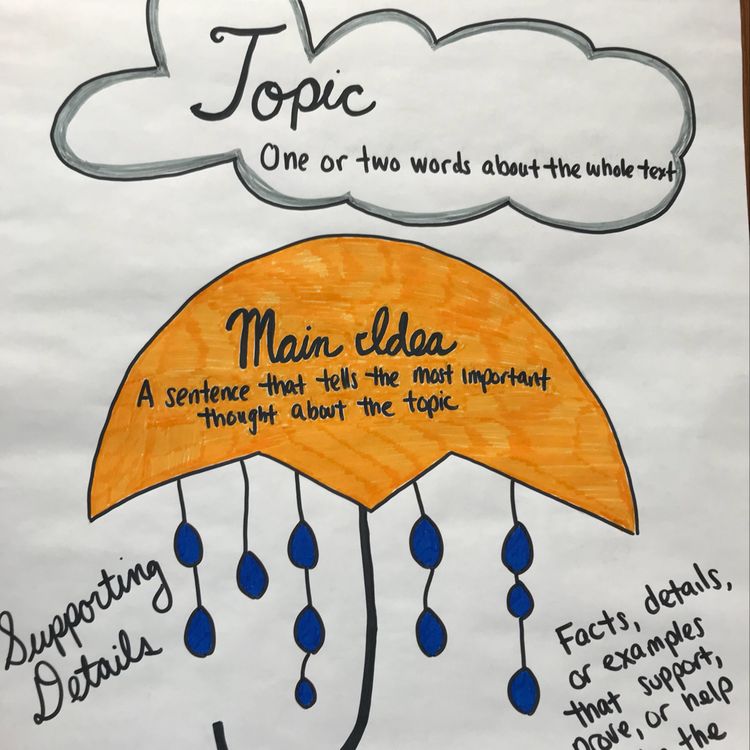 Topic
One or two words about the whole text
Main Idea
A sentence that tells the most important
thought about the topic
Supporting
Details
Facts, details,
or examples
that support,
prove, or help
the